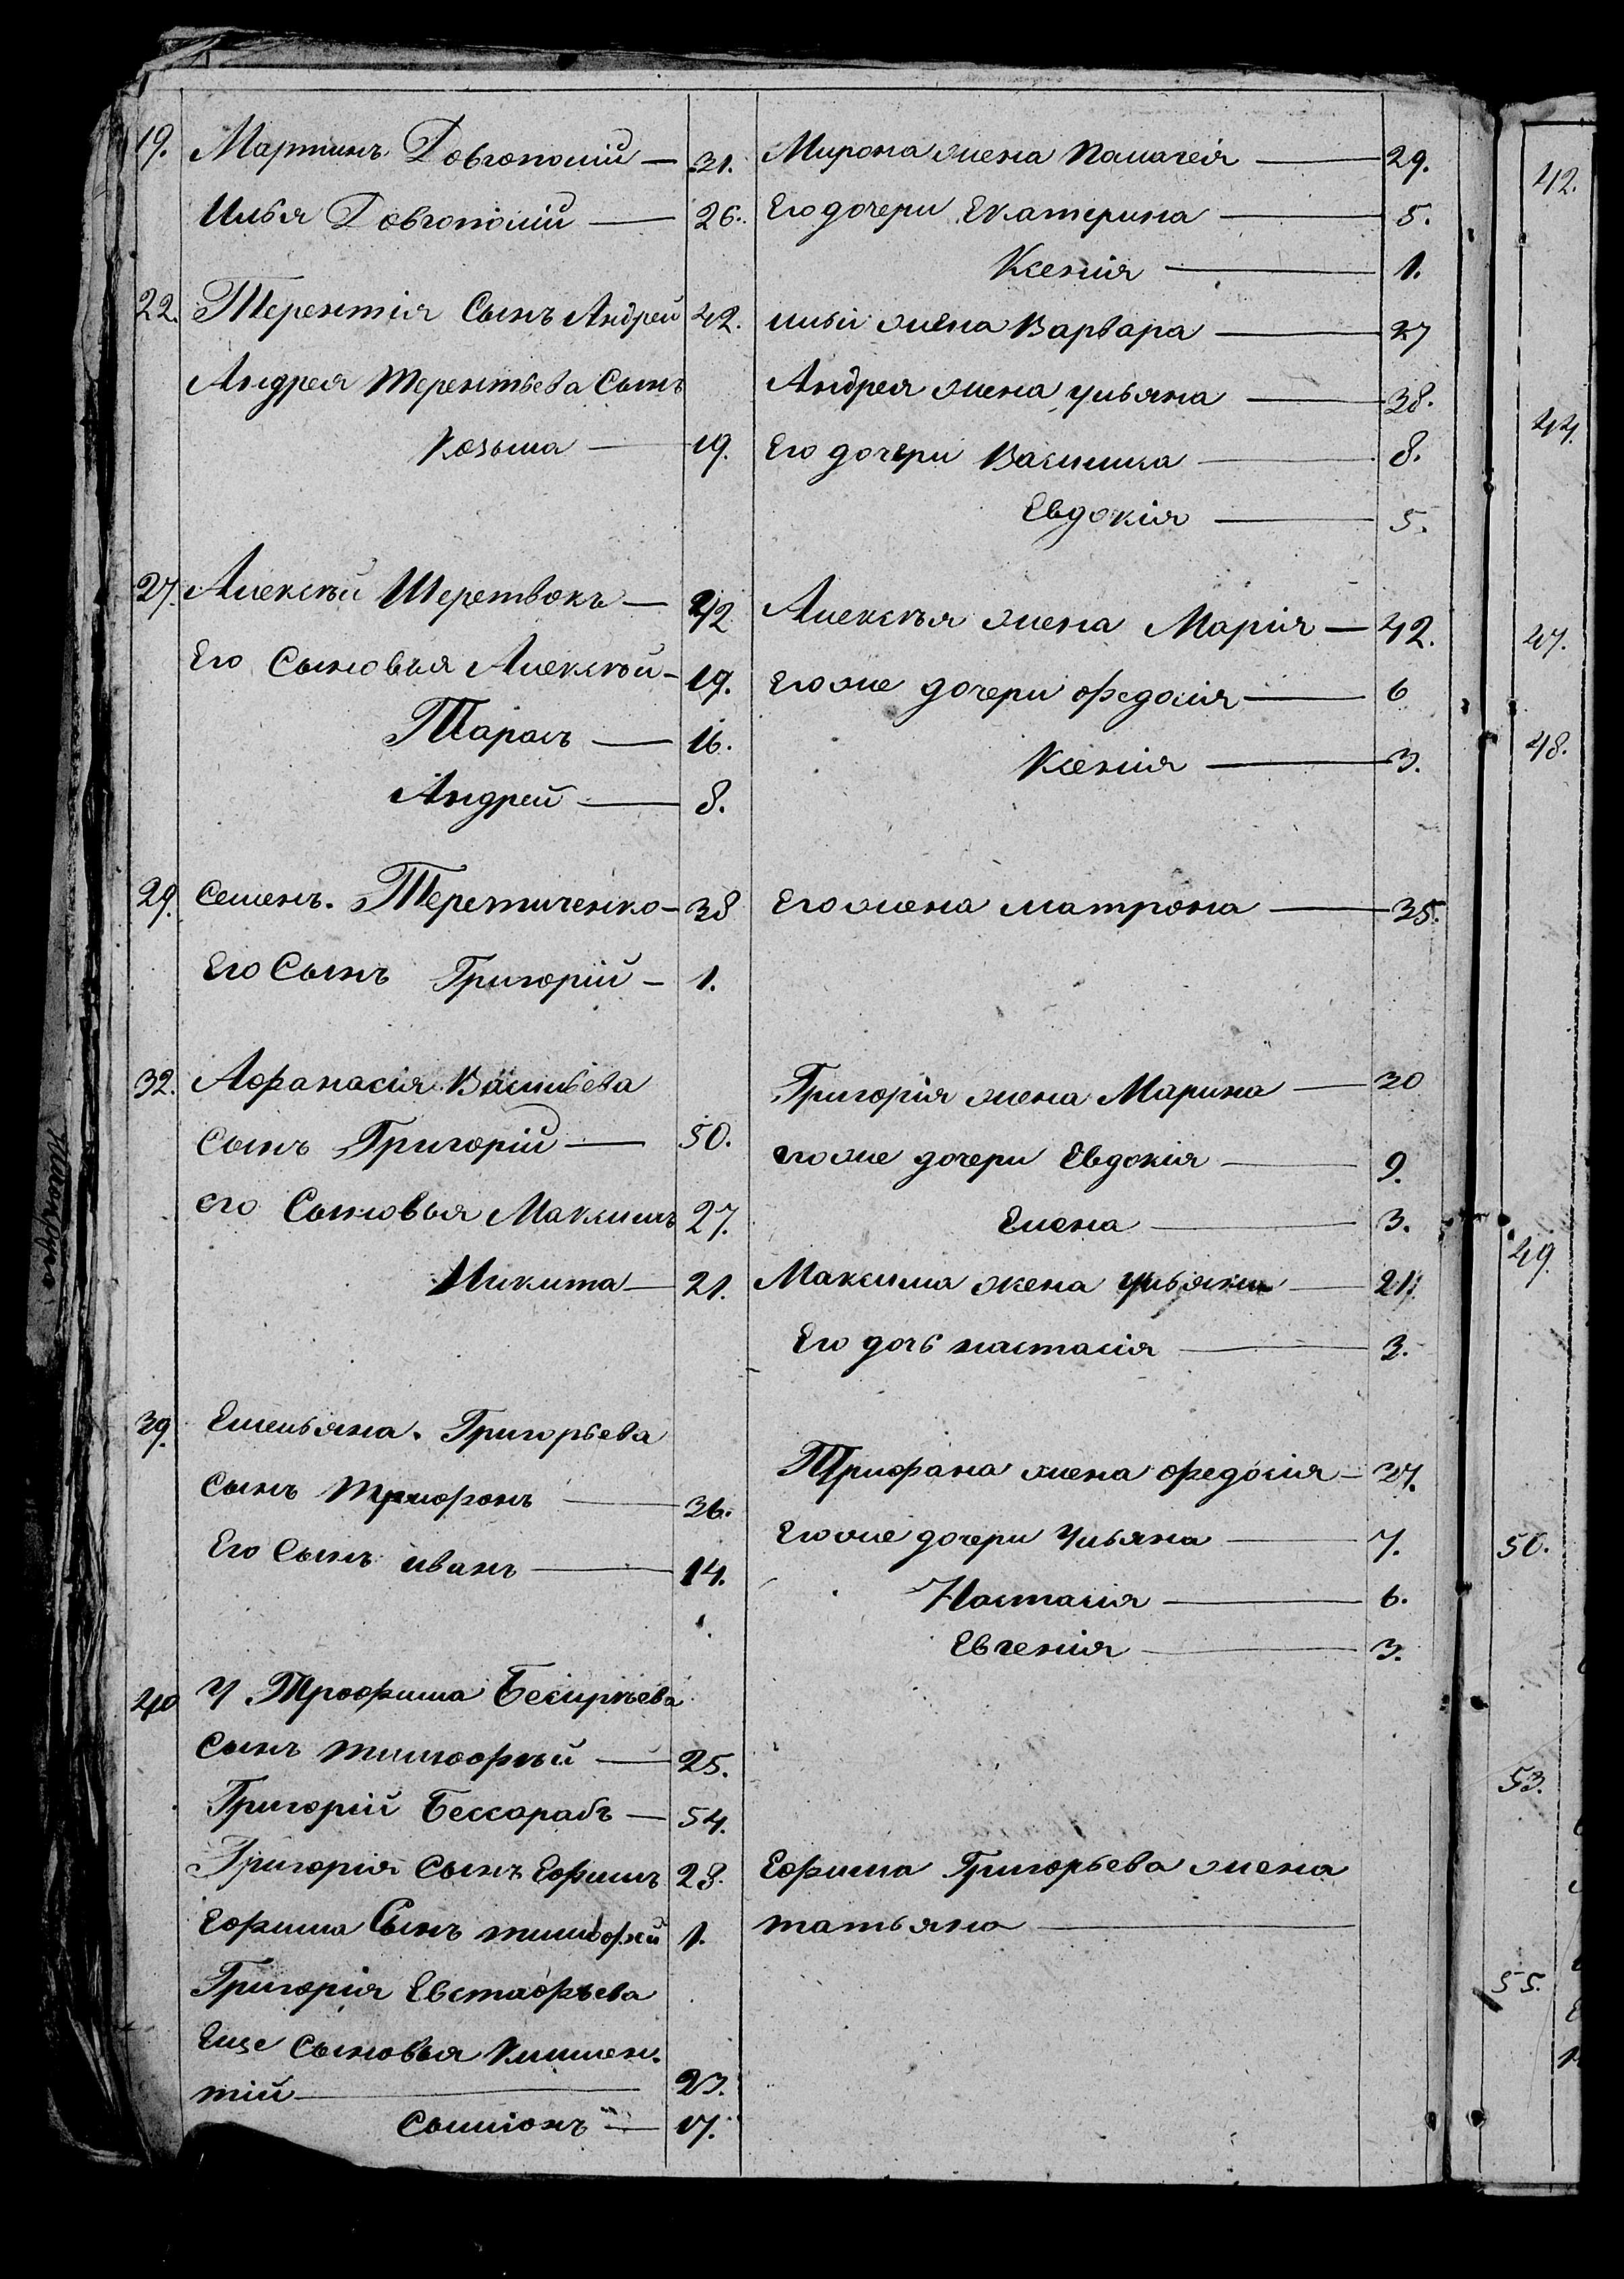 19. Мартинъ Довгополій — 31. Мирона жена Пелагея — 29.
Илья Довгополій — 26. Его дочери Екатерина — 5.
Ксенія — 1.
22. Терентія Сынъ Андрей 42. ильи жена Варвара — 27
Андрея Терентьева Сынъ Андрея жена ульяна — 38.
Козьма — 19. Его дочери Василиса — 8.
Евдокія — 5.
27. Алексѣй Шеретвокъ — 42 Алексѣя жена Марія — 42.
Его Сыновья Алексѣй — 19. Его же дочери Федосія — 6
Тарасъ — 16. Ксенія — 3.
Андрей — 8.
29. Семенъ. Теретиченко — 38 Его жена матрона — 35.
Его Сынъ Григорій — 1.
32. Афанасія Васильева Григорія жена Марина — 30
Сынъ Григорій — 50. его же дочери Евдокія — 9.
его Сыновья Максимъ 27. Елена — 3.
Никита — 21. Максима жена ульяна — 21.
Его дочь настасія — 3.
39. Емельяна. Григорьева
Сынъ Трифонъ — 36. Трифона жена федосія — 37.
Его Сынъ иванъ — 14. Его же дочери Ульяна — 7.
Настасія — 6.
Евгенія — 3.
40 У Трофима
Сынъ тимофѣй — 25.
Григорій Бессарабъ — 54.
Григорія Сынъ Ефимъ 28. Ефима Григорьева жена
Ефима Сынъ тимофей 1. татьяна —
Григорія Евстафьева
Еще Сыновья Климен-
тій — 23.
Симіонъ — 17.
42.
44.
47.
48.
49
50.
53.
55.